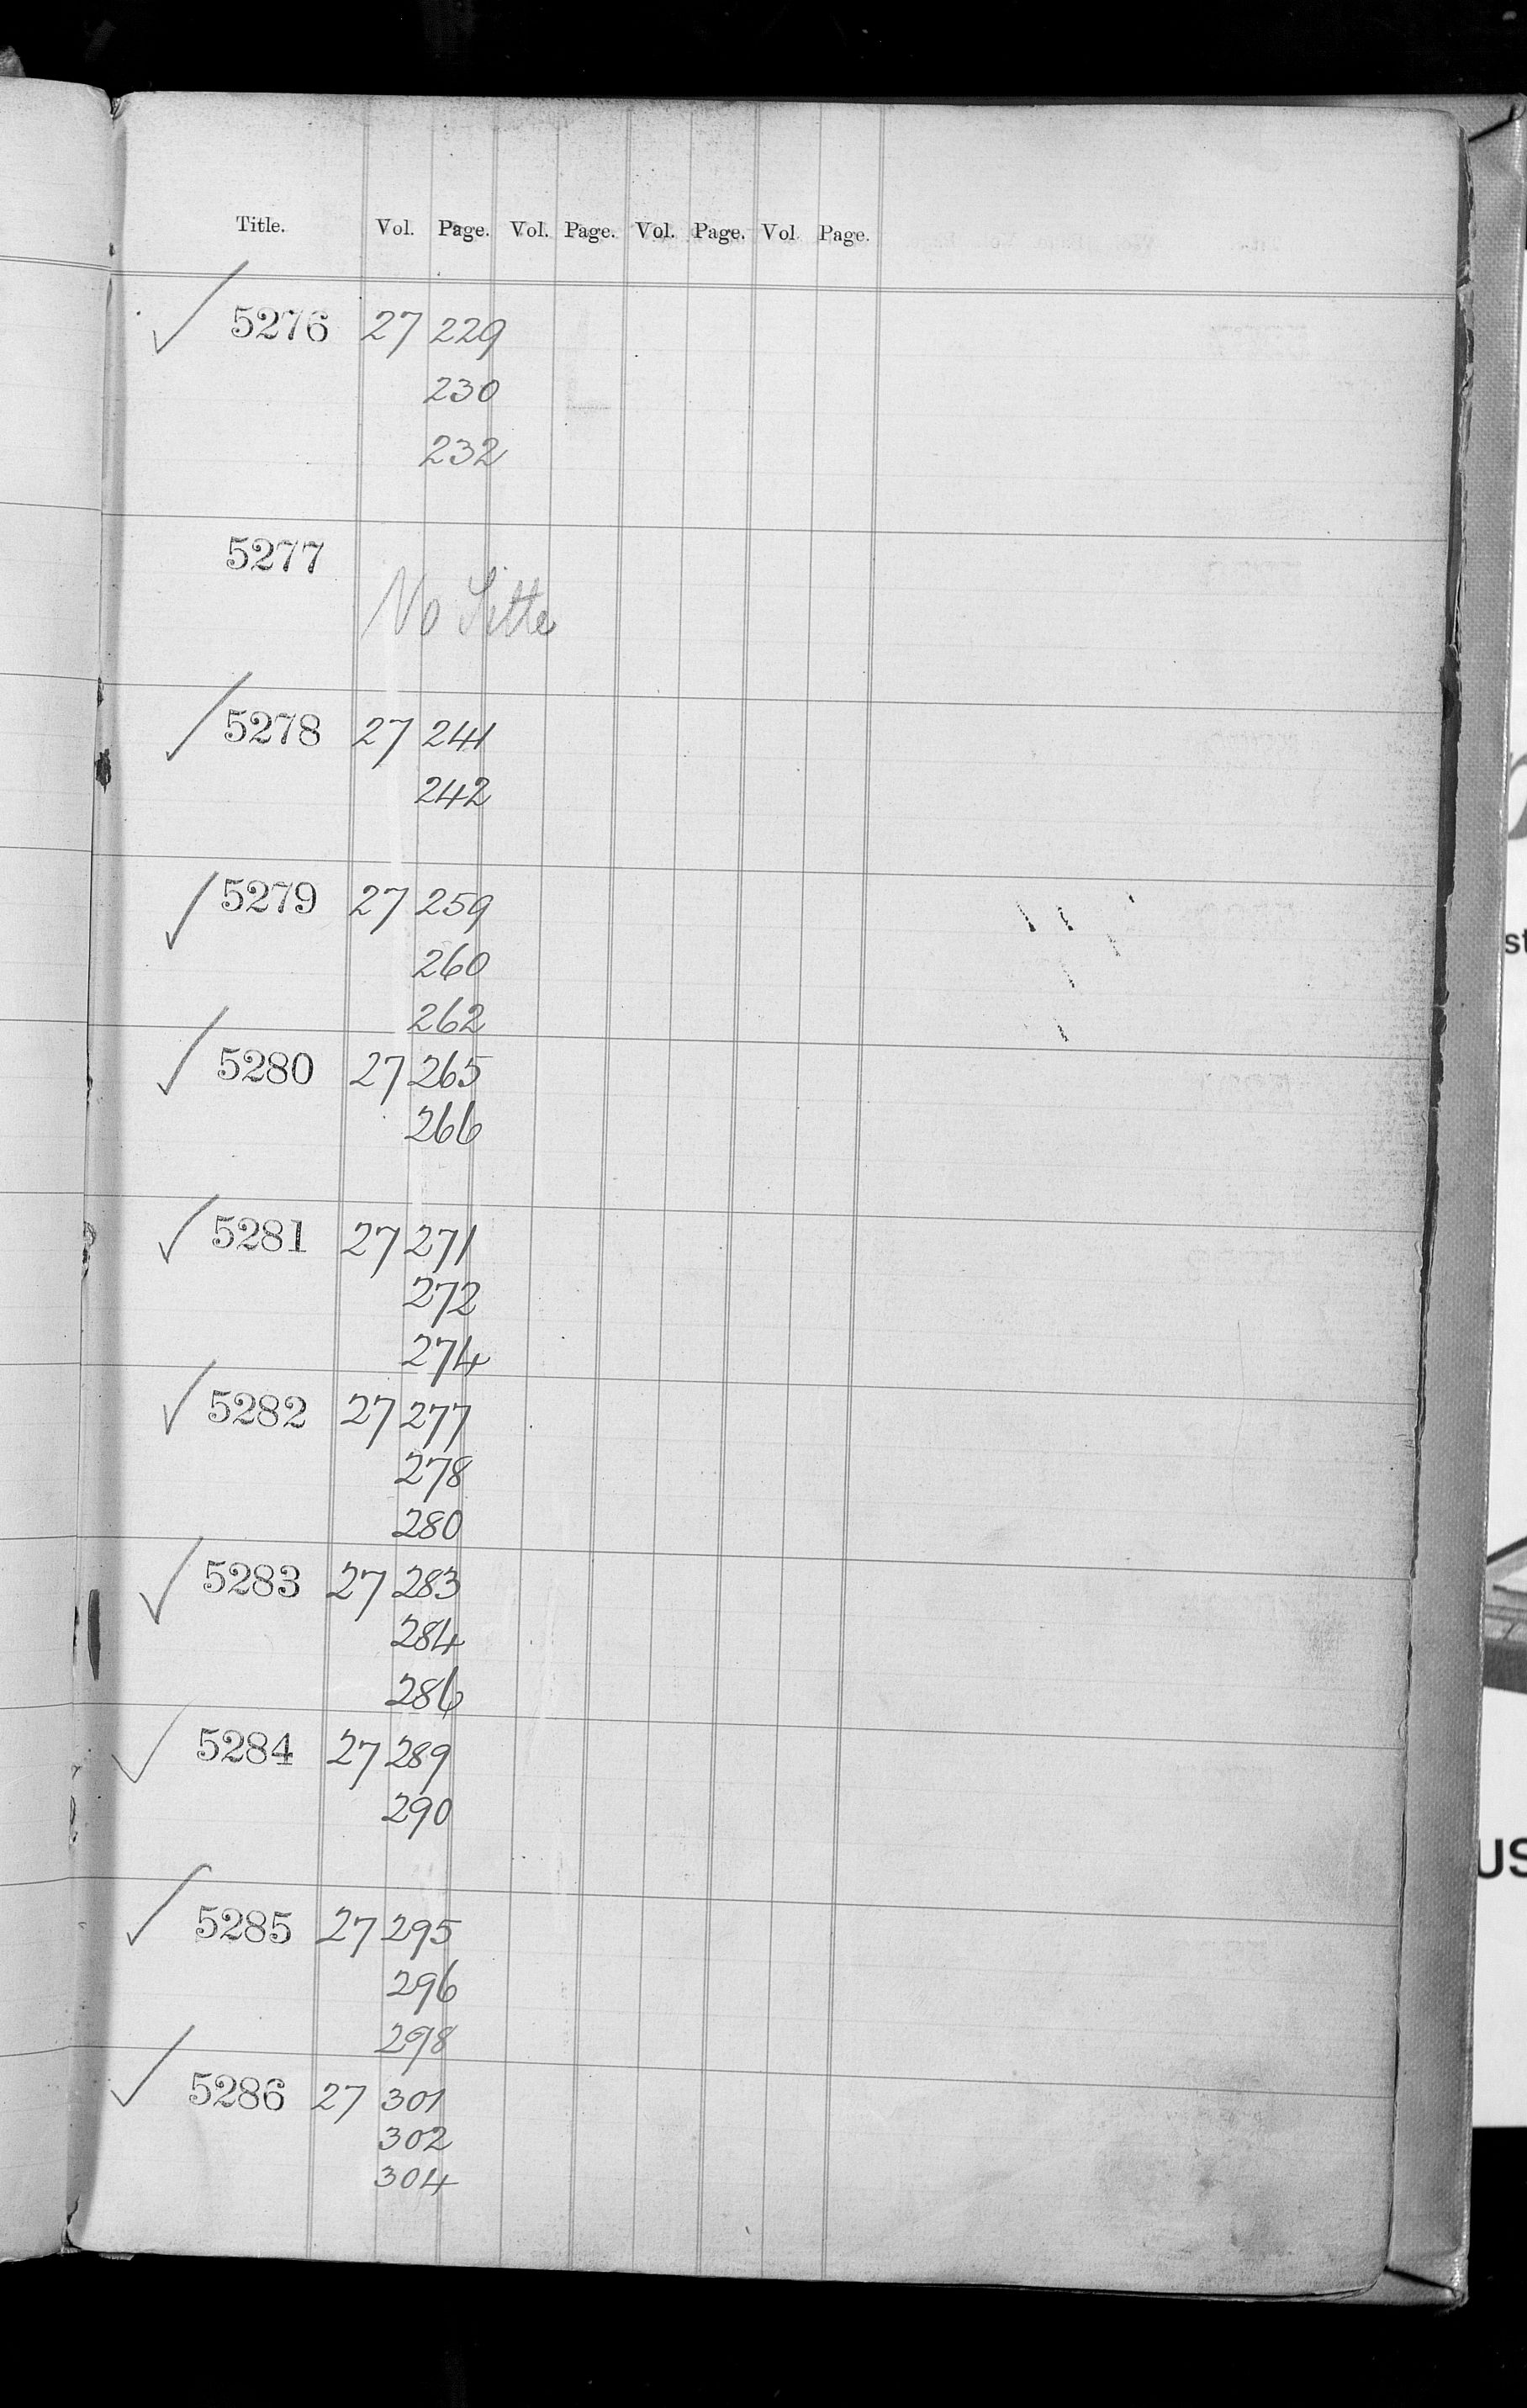 Title. Vol. Page. Vol. Page. Vol. Page. Vol Page.
✓ 5276 27 229
230
232
5277
No Title
✓ 5278 27 241
242
✓ 5279 27 259
260
262
✓ 5280 27 265
266
✓ 5281 27 271
272
274
✓ 5282 27 277
278
280
✓ 5283 27 283
284
286
✓ 5284 27 289
290
✓ 5285 27 295
296
298
✓ 5286 27 301
302
304